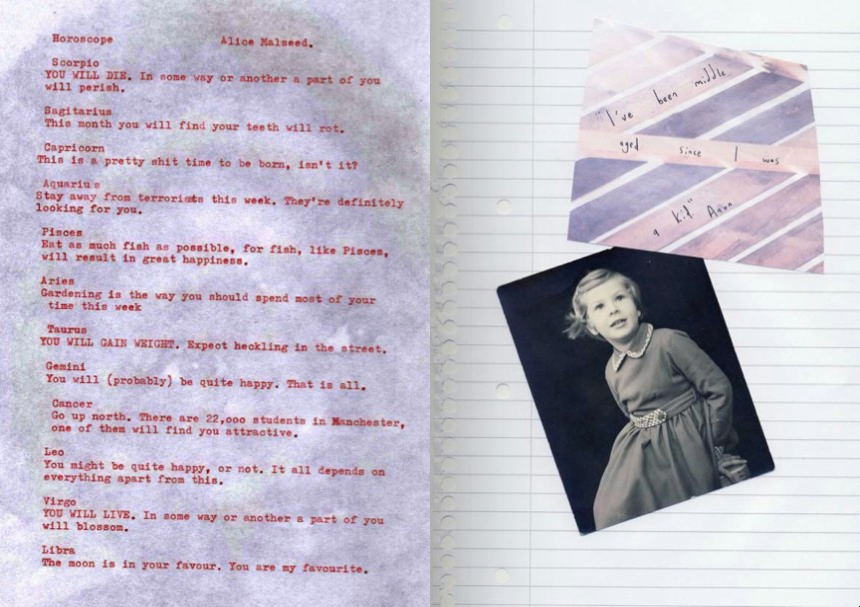 Horoscope Alice Malseed.
Scorpio
YOU WILL DIE. In some way or another a part of you
will perish.
Sagitarius
This month you will find your teeth will rot.
Capricorn
This is a pretty shit time to be born, isn't it?
Aquarius
Stay away from terrorists this week. They're definitely
looking for you.
Pisces
Eat as much fish as possible, for fish, like Pisces,
will result in great happiness.
Aries
Gardening is the way you should spend most of your
time this week
Taurus
YOU WILL GAIN WEIGHT. Expect heckling in the street.
Gemini
You will (probably) be quite happy. That is all.
Cancer
Go up north. There are 22,000 students in Manchester,
one of them will find you attractive.
Leo
You might be quite happy, or not. It all depends on
everything apart from this.
Virgo
YOU WILL LIVE. In some way or another a part of you
will blossom.
Libra
The moon is in your favour. You are my favourite.
"I've been middle
aged since I was
a kid" Anna